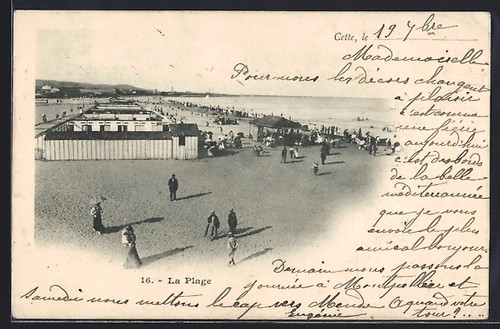 Cette, le 19 7bre
Mademoiselle
Pour nous les décors changent
à plaisir
c'est comme
une féerie
aujourd'hui
c'est des bords
de la belle
méditerranée
que je vous
envoie le plus
amical bonjour.
Demain nous passons la
journée à Montpellier et
Samedi nous mettons le cap vers Mende O quand votre
Eugénie tour?...
16. - La Plage